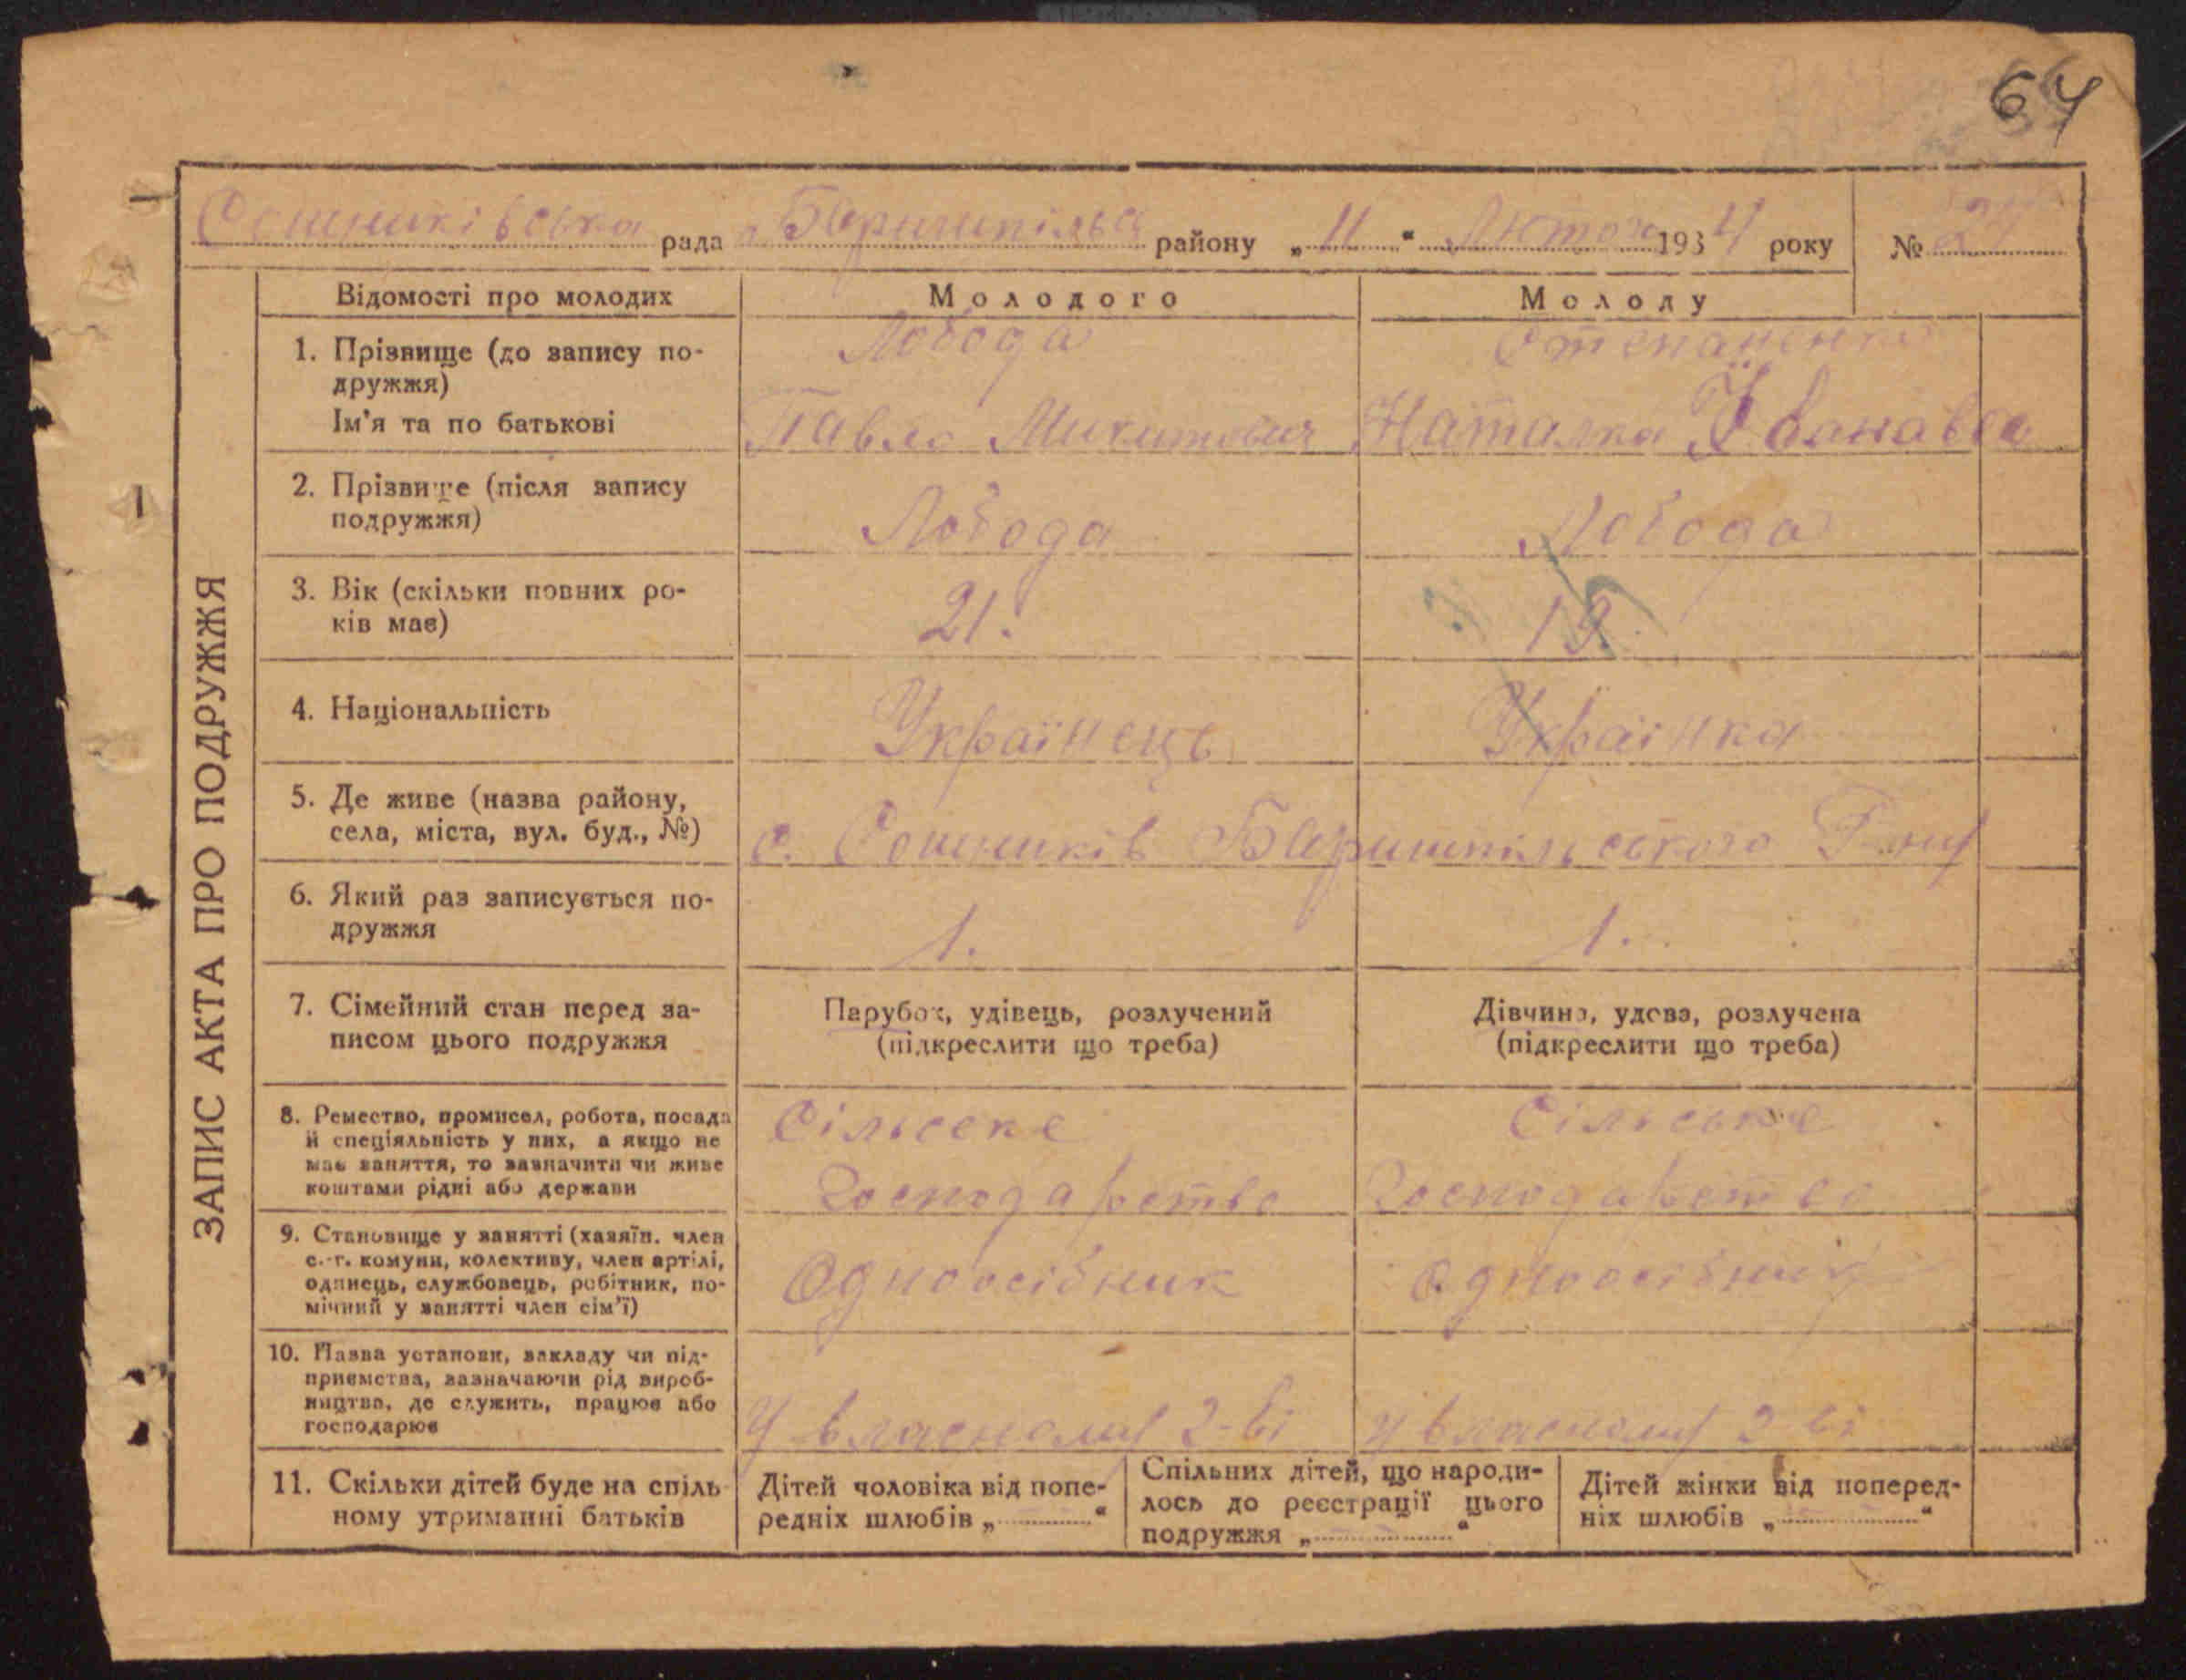 64
Сошниківська рада Баришпільсь району „ 11 “ Лютого 1934 року № 21
Відомості про молодих Молодого Молоду
ЗАПИС АКТА ПРО ПОДРУЖЖЯ
1. Прізвище (до запису по-
дружжя)
Ім'я та по батькові
Лобода
Павло Микитович
Степаненко
Наталка Іванавна
2. Прізвище (після запису
подружжя)
Лобода
Лобода
3. Вік (скільки повних ро-
ків має)
21.
19.
4. Національність
Українець
Українка
5. Де живе (назва району,
села, міста, вул. буд., №)
с. Сошників Баришпільського Р-ну
6. Який раз записується по-
дружжя
1.
1.
7. Сімейний стан перед за-
писом цього подружжя
Парубок, удівець, розлучений
(підкреслити що треба)
Дівчина, удова, розлучена
(підкреслити що треба)
8. Ремество, промисел, робота, посада
й спеціяльність у них, а якщо не
має заняття, то зазначити чи живе
коштами рідні або держави
Сільське
Господарство
Сільське
Господарство
9. Становище у занятті (хазяїн. член
с.-г. комуни, колективу, член артілі,
одинець, службовець, робітник, по-
мічний у занятті член сім'ї)
Одноосібник
Одноосібник
10. Назва установи, закладу чи під-
приємства, зазначаючи рід вироб-
ництва, де служить, працює або
господарює
У власному г-ві
У власному г-ві
11. Скільки дітей буде на спіль-
ному утриманні батьків
Дітей чоловіка від попе-
редніх шлюбів „ “
Спільних дітей, що народи-
лось до реєстрації цього
подружжя „ “
Дітей жінки від поперед-
ніх шлюбів „ “